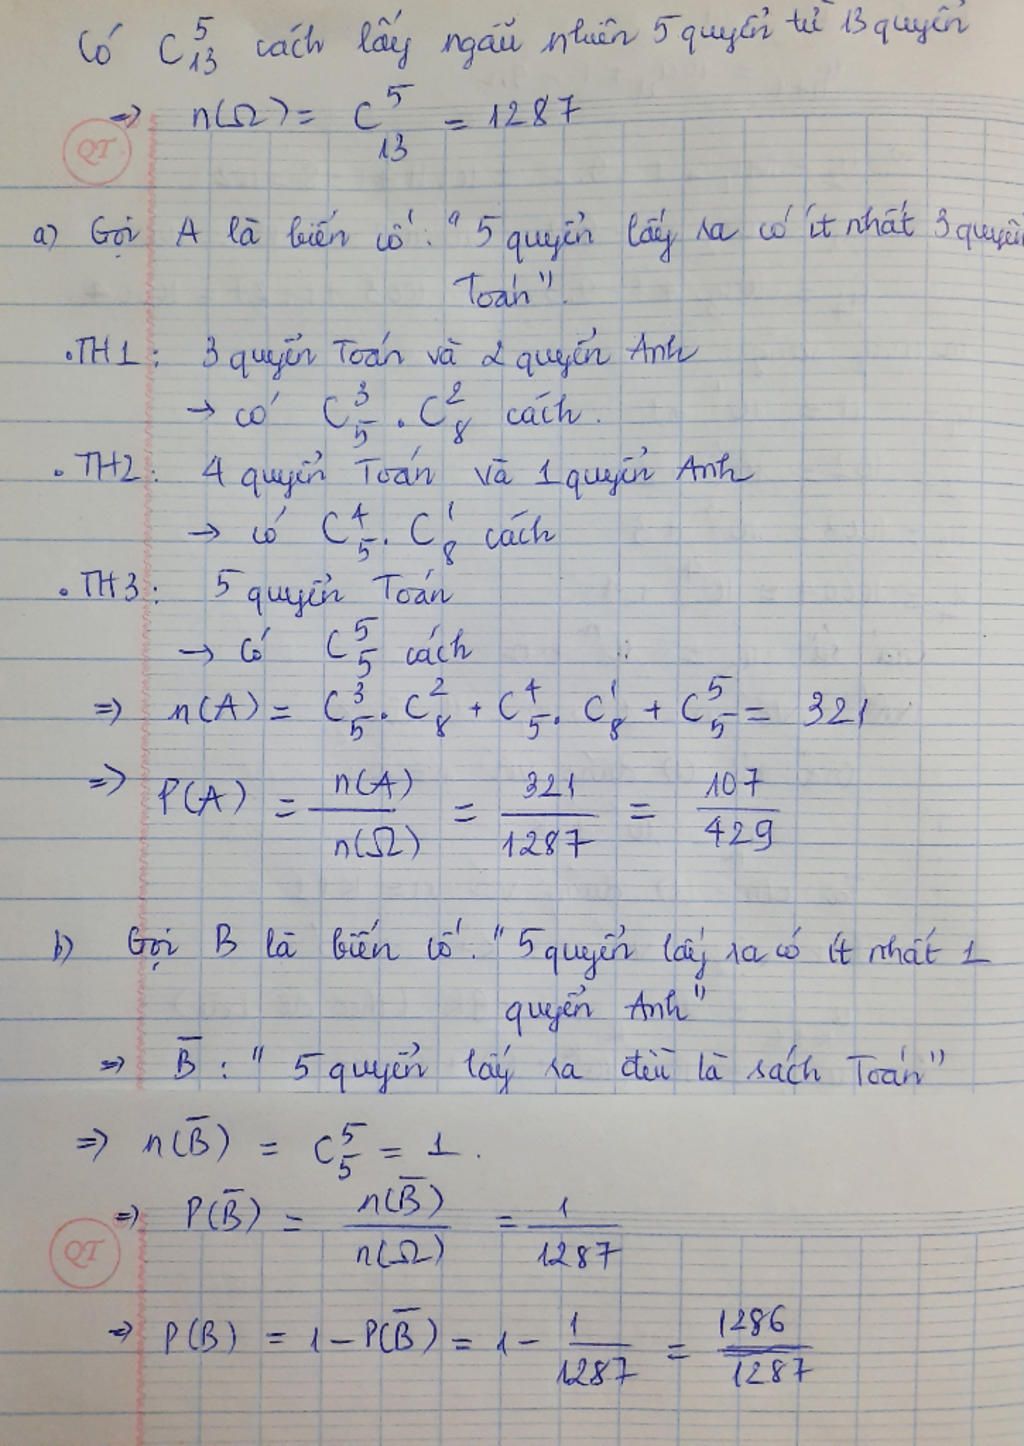 Có C⁵₁₃ cách lấy ngẫu nhiên 5 quyển từ 13 quyển
=> n(Ω) = C⁵₁₃ = 1287
QT
a) Gọi A là biến cố: "5 quyển lấy ra có ít nhất 3 quyển
Toán".
.TH1: 3 quyển Toán và 2 quyển Anh
→ có C³₅ . C²₈ cách.
.TH2: 4 quyển Toán và 1 quyển Anh
→ có C⁴₅ . C¹₈ cách
.TH3: 5 quyển Toán
→ Có C⁵₅ cách
=> n(A) = C³₅ . C²₈ + C⁴₅ . C¹₈ + C⁵₅ = 321
=> P(A) = n(A)/n(Ω) = 321/1287 = 107/429
b) Gọi B là biến cố: "5 quyển lấy ra có ít nhất 1
quyển Anh"
=> B̅ : " 5 quyển lấy ra đều là sách Toán"
=> n(B̅) = C⁵₅ = 1.
=> P(B̅) = n(B̅)/n(Ω) = 1/1287
QT
=> P(B) = 1 - P(B̅) = 1 - 1/1287 = 1286/1287